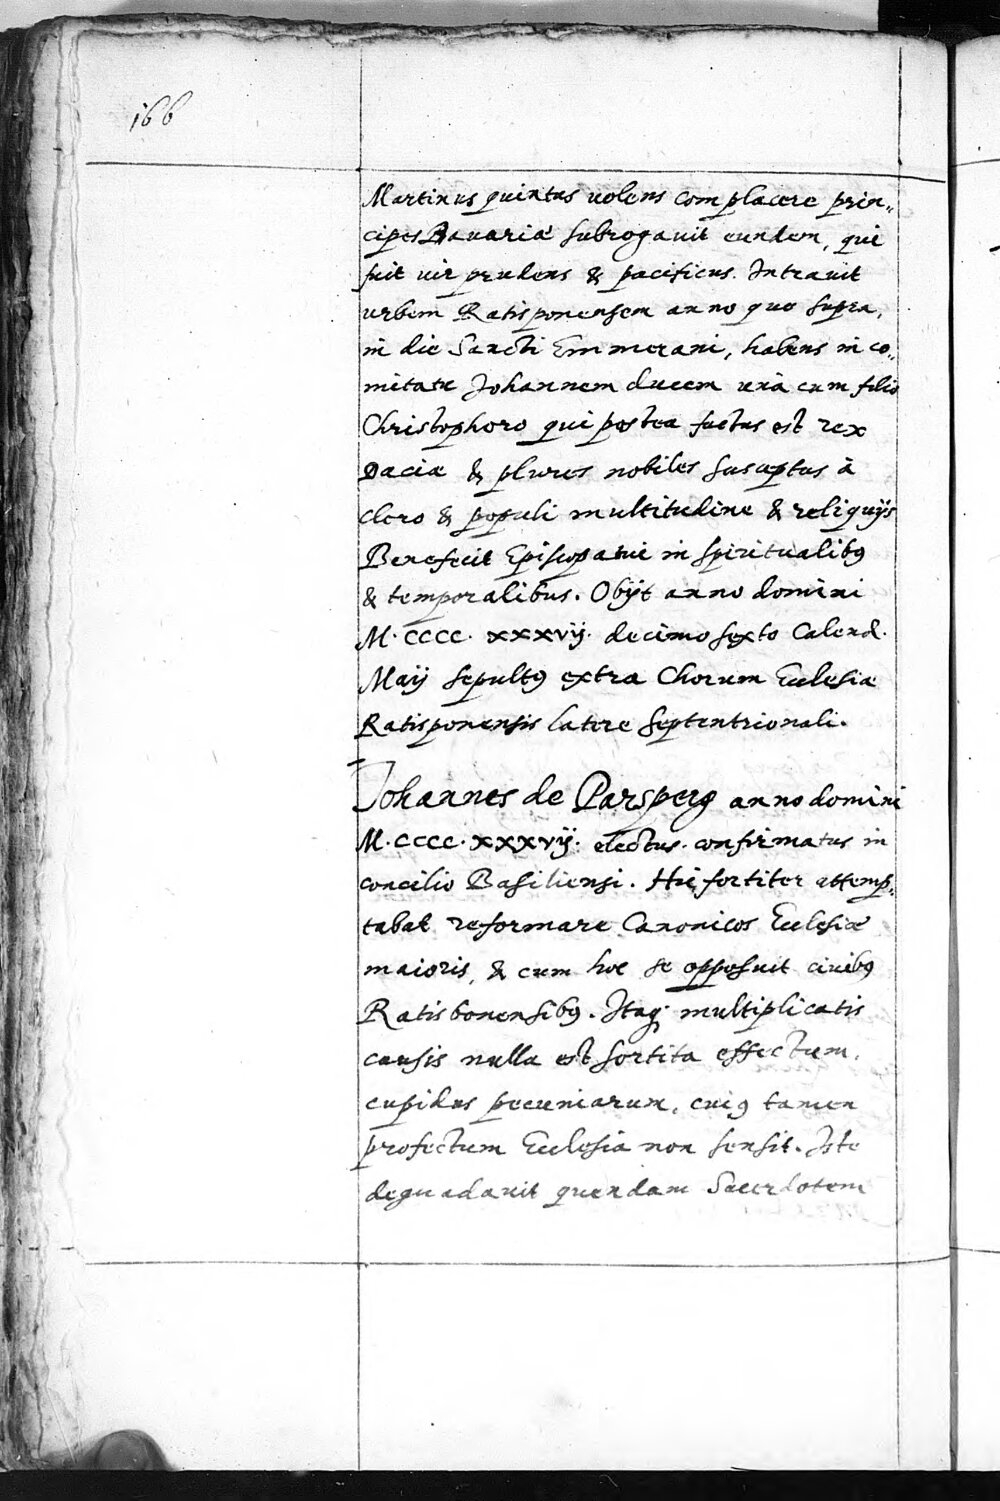 166
Martinus quintus uolens complacere prin„
cipes Bauariæ subrogauit eundem, qui
fuit uir prudens & pacificus. Intrauit
urbem Ratisponensem anno quo supra,
in die Sancti Emmerani, habens in co„
mitatu Johannem ducem unà cum filio
Christophoro qui postea factus est rex
Daciæ & plures nobiles susceptus à
clero & populi multitudine & reliquijs
Benefecit Episcopatui in spiritualibꝰ
& temporalibus. Obijt anno domini
M·CCCC·xxxvij· decimo sexto Calend.
Maij sepultꝰ extra Chorum Ecclesiæ
Ratisponensis latere septentrionali.
Johannes de Parsperg anno domini
M·CCCC·xxxvij· electus· confirmatus in
concilio Basiliensi. Hic fortiter attemp„
tabat reformare Canonicos Ecclesiæ
maioris, & cum hoc se opposuit ciuibꝰ
Ratisbonensibꝰ. Itaq; multiplicatis
causis nulla est sortita effectum,
cupidus pecuniarum, cuiꝰ tamen
profectum Ecclesia non sensit. Iste
deguadauit quendam Sacerdotem